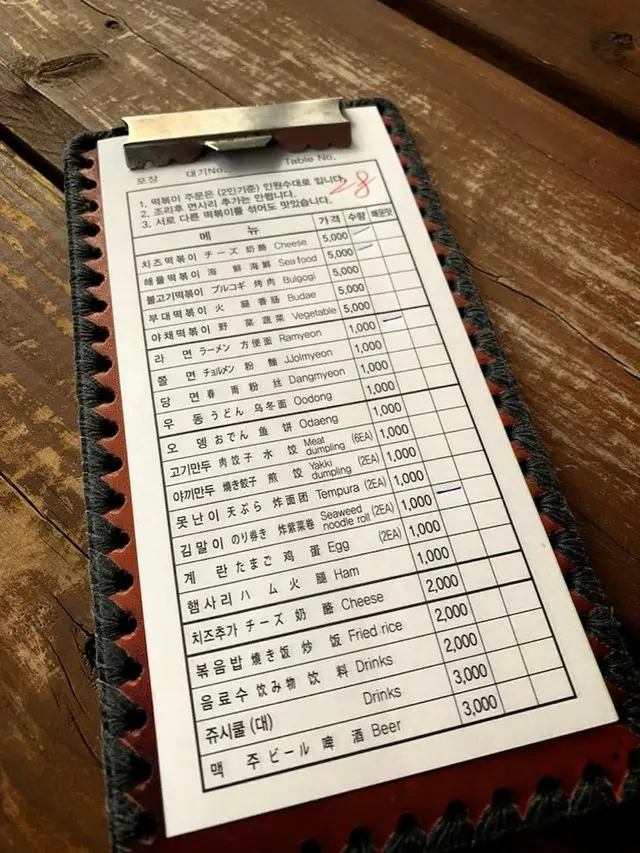 포장 대기No. Table No.
28
1. 떡볶이 주문은 (2인기준) 인원수대로 입니다.
2. 조리후 면사리 추가는 안됩니다.
3. 서로 다른 떡볶이를 섞어도 맛있습니다.
메 뉴 가격 수량 매운맛
치즈떡볶이 チーズ 奶酪 Cheese 5,000
해물떡볶이 海 鮮 海鲜 Sea food 5,000
불고기떡볶이 プルコギ 烤肉 Bulgogi 5,000
부대떡볶이 火 腿 香肠 Budae 5,000
야채떡볶이 野 菜 蔬菜 Vegetable 5,000
라 면 ラーメン 方便面 Ramyeon 1,000
쫄 면 チョルメン 粉 麵 JJolmyeon 1,000
당 면 春 雨 粉 丝 Dangmyeon 1,000
우 동 うどん 乌冬面 Oodong 1,000
오 뎅 おでん 鱼 饼 Odaeng 1,000
고기만두 肉餃子 水 饺 Meat dumpling (6EA) 1,000
야끼만두 焼き餃子 煎 饺 Yakki dumpling (2EA) 1,000
못난이 天ぷら 炸面团 Tempura (2EA) 1,000
김말이 のり巻き 炸紫菜卷 Seaweed noodle roll (2EA) 1,000
계 란 たまご 鸡 蛋 Egg (2EA) 1,000
햄사리 ハ ム 火 腿 Ham 1,000
치즈추가 チーズ 奶 酪 Cheese 2,000
볶음밥 焼き飯 炒 饭 Fried rice 2,000
음료수 飲み物 饮 料 Drinks 2,000
쥬시쿨 (대) Drinks 3,000
맥 주 ビール 啤 酒 Beer 3,000